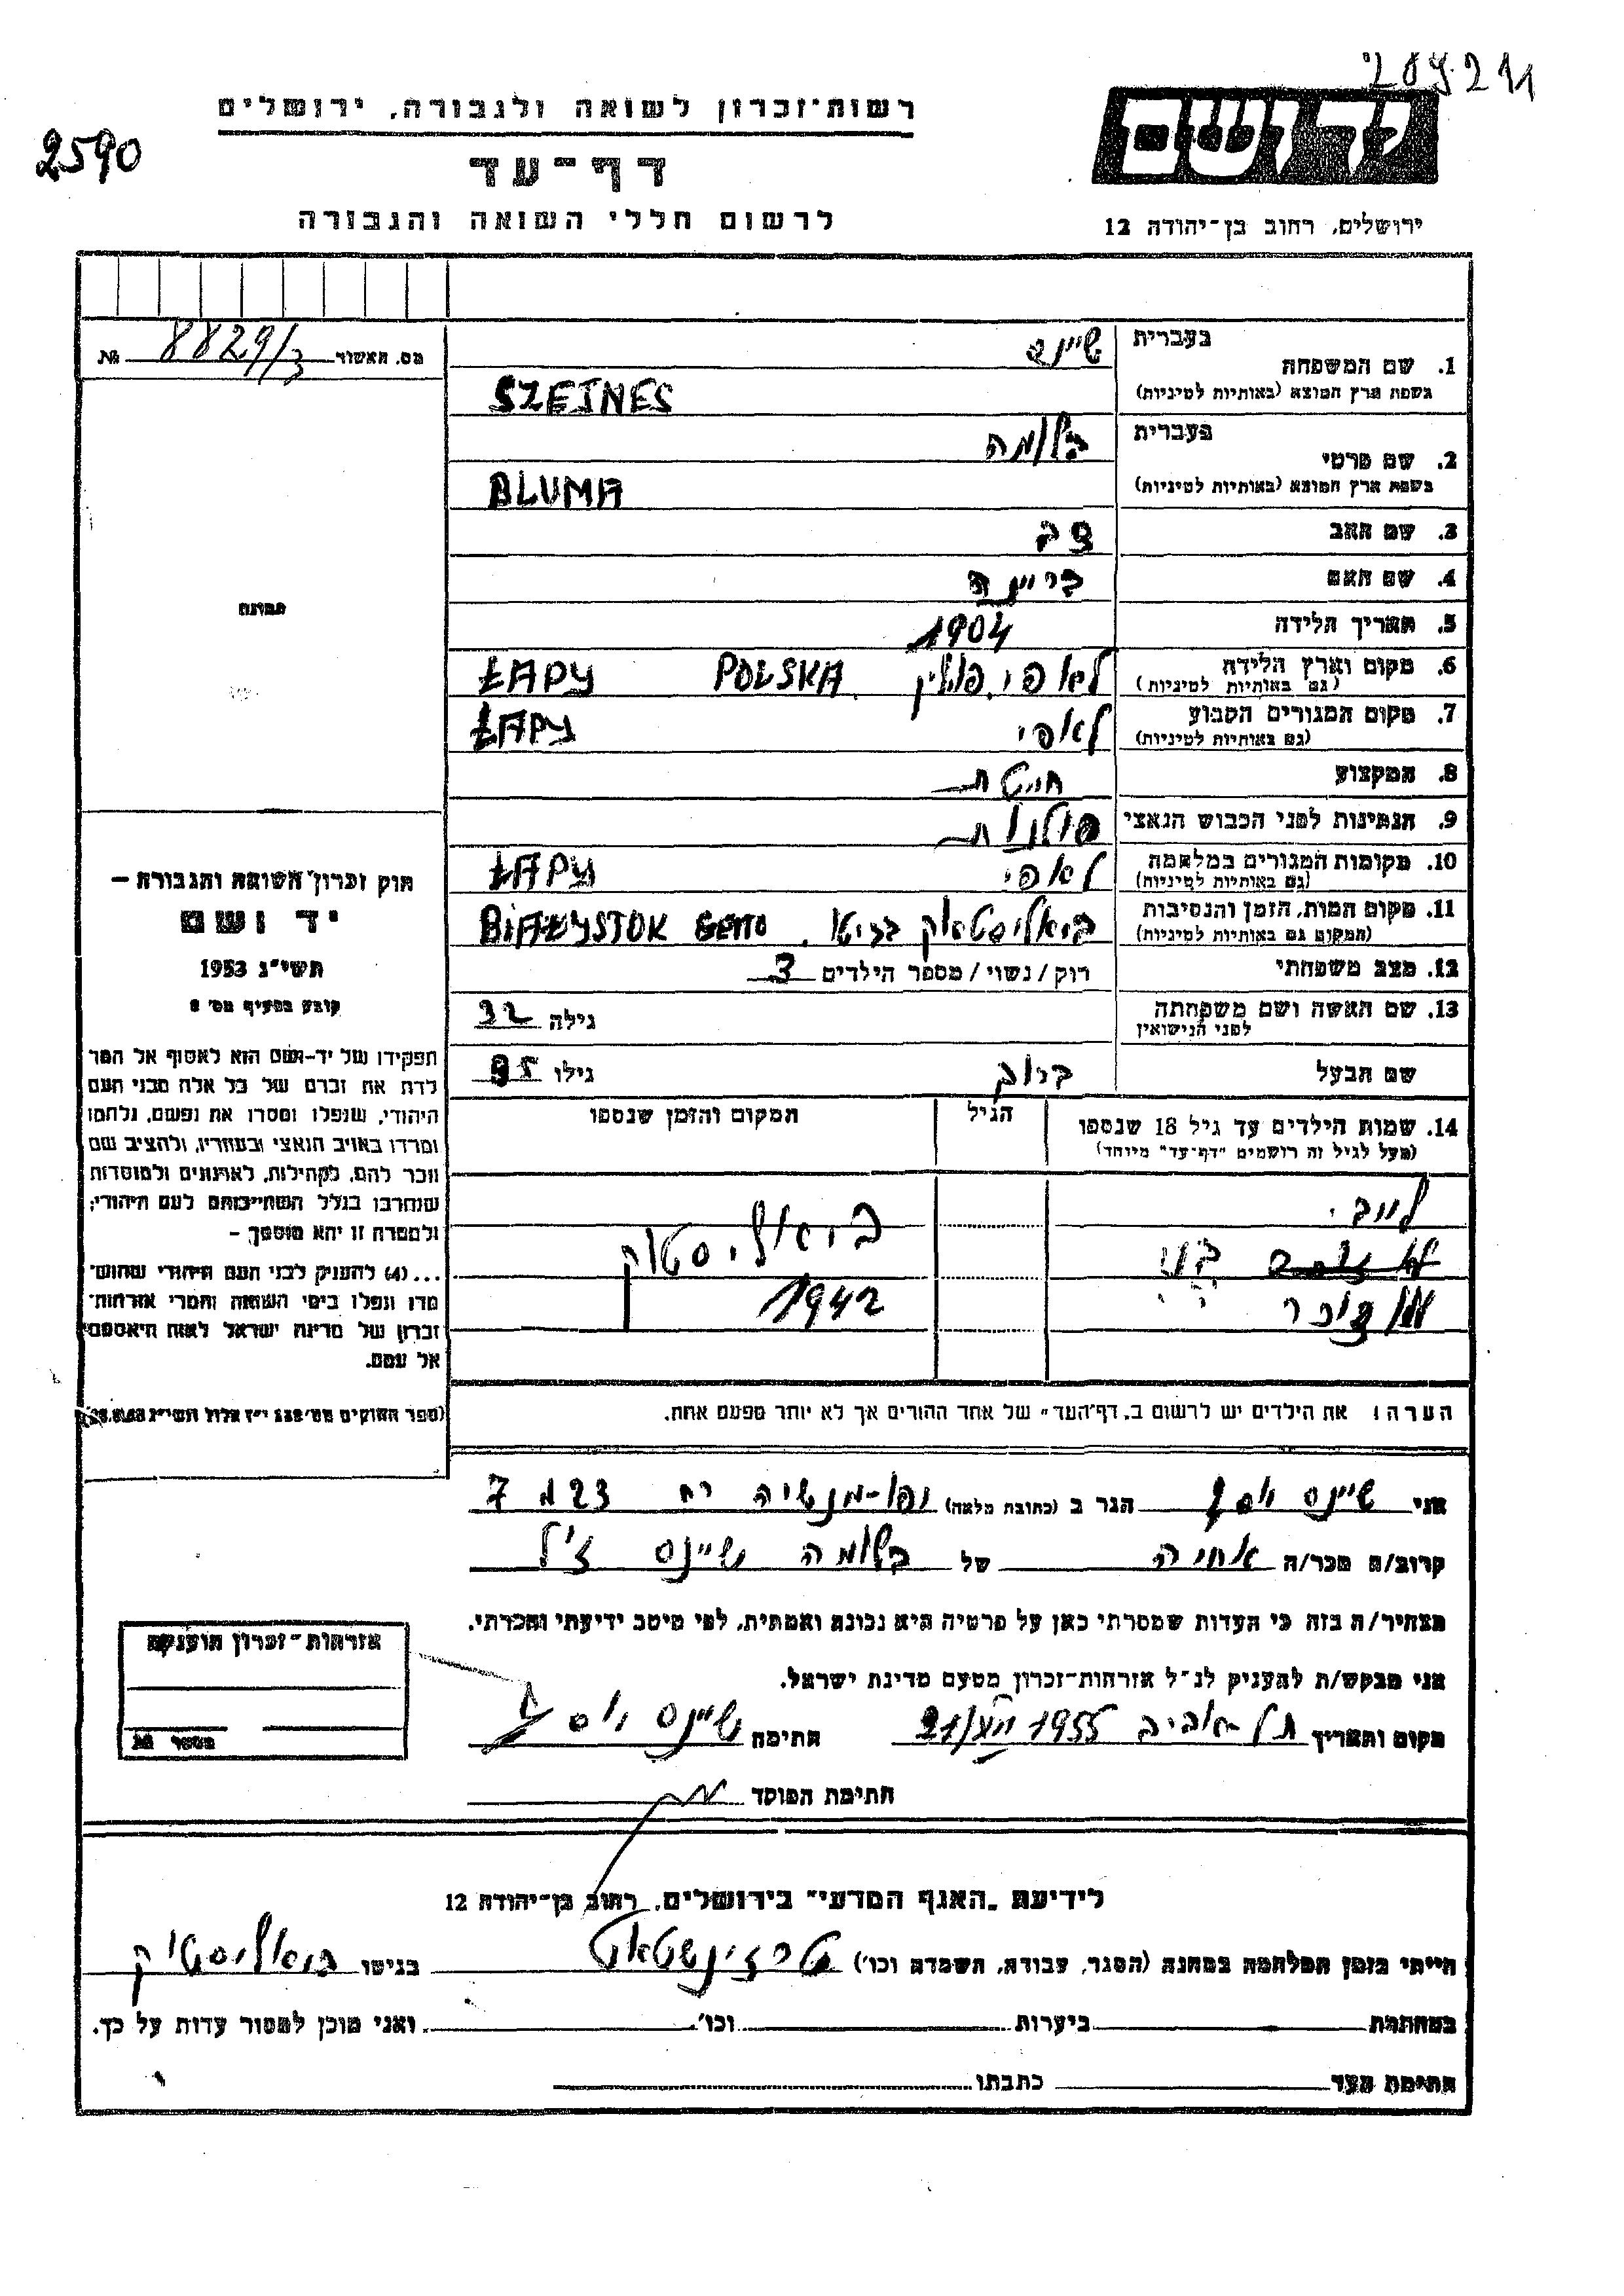 209211
רשות־זכרון לשואה ולגבורה, ירושלים
2590
דף־עד
לרשום חללי השואה והגבורה
ידושם
ירושלים, רחוב בן־יהודה 12
מס. האשור 8829/3 №
1. שם המשפחה בעברית שיינס
בשפת ארץ המוצא (באותיות לטיניות) SZEJNES
2. שם פרטי בעברית בלומה
בשפת ארץ המוצא (באותיות לטיניות) BLUMA
3. שם האב צבי
4. שם האם בריינה
5. תאריך הלידה 1904
6. מקום וארץ הלידה (גם באותיות לטיניות) לאפי, פולין ŁAPY POLSKA
7. מקום המגורים הקבוע (גם באותיות לטיניות) לאפי ŁAPY
8. המקצוע חייטת
9. הנתינות לפני הכבוש הנאצי פולנית
10. מקומות המגורים במלחמה (גם באותיות לטיניות) לאפי ŁAPY
11. מקום המות, הזמן והנסיבות (המקום גם באותיות לטיניות) ביאליסטאק בגיטו. BIAŁYSTOK GETTO
12. מצב משפחתי רוק/נשוי/מספר הילדים 3
13. שם האשה ושם משפחתה לפני הנישואין גילה 32
שם הבעל ברוך גילו 35
14. שמות הילדים עד גיל 18 שנספו (מעל לגיל זה רושמים "דף־עד" מיוחד) הגיל המקום והזמן שנספו
לייבי
ביאליסטוק
1942
הערה: את הילדים יש לרשום ב„דף־העד" של אחד ההורים אך לא יותר מפעם אחת.
תמונה
חוק זכרון השואה והגבורה —
יד ושם
תשי"ג 1953
קובע בסעיף מס' 2
תפקידו של יד־ושם הוא לאסוף אל המו־
לדת את זכרם של כל אלה מבני העם
היהודי, שנפלו ומסרו את נפשם, נלחמו
ומרדו באויב הנאצי ובעוזריו, ולהציב שם
וזכר להם, לקהילות, לארגונים ולמוסדות
שנחרבו בגלל השתייכותם לעם היהודי;
ולמטרה זו יהא מוסמך —
...(4) להעניק לבני העם היהודי שהוש־
מדו ונפלו בימי השואה והמרי אזרחות־
זכרון של מדינת ישראל לאות היאספם
אל עמם.
(ספר החוקים מס' 132 י"ז אלול תשי"ג 28.8.53)
אני שיינס יוסף הגר ב (כתובת מלאה) יפו־מנשיה רח 23 מ 7
קרוב/ה מכר/ה אחיה של בלומה שיינס ז"ל
מצהיר/ה בזה כי העדות שמסרתי כאן על פרטיה היא נכונה ואמתית, לפי מיטב ידיעתי והכרתי.
אני מבקש/ת להעניק לנ"ל אזרחות־זכרון מטעם מדינת ישראל.
מקום ותאריך תל־אביב 1955 21/ חתימה שיינס יוסף
חתימת הפוקד
אזרחות־זכרון הוענקה
מספר №
לידיעת „האגף המדעי" בירושלים, רחוב בן־יהודה 12
הייתי בזמן המלחמה במחנה (הסגר, עבודה, השמדה וכו') טרזינשטאט בגיטו ביאליסטוק
במחתרת ביערות וכו' ואני מוכן למסור עדות על כך.
חתימת העד כתבתו